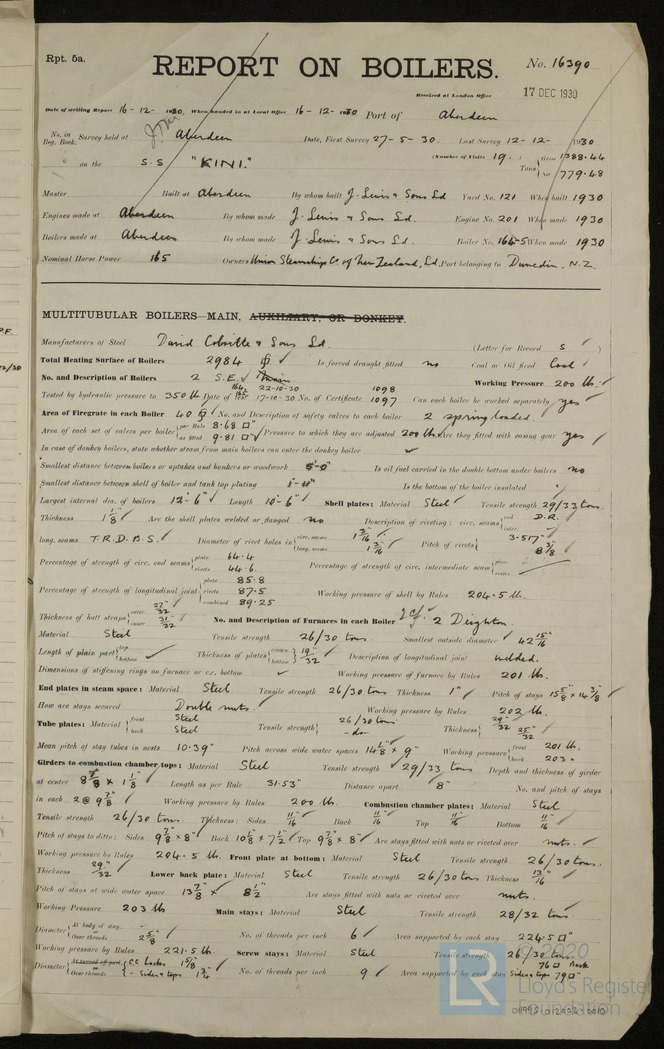 Rpt. 5a.
REPORT ON BOILERS.
No. 16390
Received at London Office 17 DEC 1930
Date of writing Report 16-12-1930. When handed in at Local Office 16-12-1930 Port of Aberdeen
No. in Reg. Book. Survey held at Aberdeen Date, First Survey 27-5-30. Last Survey 12-12-1930
on the S.S "KINI." (Number of Visits 19.) Tons Gross 1388.44 Net 779.48
Master Built at Aberdeen By whom built J. Lewis & Sons Ld Yard No. 121 When built 1930
Engines made at Aberdeen By whom made J. Lewis & Sons Ld. Engine No. 201 When made 1930
Boilers made at Aberdeen By whom made J. Lewis & Sons Ld. Boiler No. 164-5 When made 1930
Nominal Horse Power 165 Owners Union Steamship Co. of New Zealand, Ld. Port belonging to Dunedin. N.Z.
MULTITUBULAR BOILERS—MAIN, AUXILIARY, OR DONKEY.
Manufacturers of Steel David Colville & Sons Ld. (Letter for Record S ✓)
Total Heating Surface of Boilers 2984 ✓ Is forced draught fitted no Coal or Oil fired Coal ✓
No. and Description of Boilers 2 S.E. ✓ Working Pressure 200 lbs. ✓
Tested by hydraulic pressure to 350 lb Date of test 164 22-10-30 165 17-10-30 No. of Certificate 1098 1097 Can each boiler be worked separately yes ✓
Area of Firegrate in each Boiler 40 ✓ No. and Description of safety valves to each boiler 2 spring loaded.
Area of each set of valves per boiler per Rule 8.68 □" as fitted 9.81 □" ✓ Pressure to which they are adjusted 200 lbs Are they fitted with easing gear yes ✓
In case of donkey boilers, state whether steam from main boilers can enter the donkey boiler ✓
Smallest distance between boilers or uptakes and bunkers or woodwork 5'-0" Is oil fuel carried in the double bottom under boilers no
Smallest distance between shell of boiler and tank top plating Is the bottom of the boiler insulated
Largest internal dia. of boilers 12'-6" ✓ Length 10'-6" ✓ Shell plates: Material Steel ✓ Tensile strength 29/33 tons.
Thickness 1 1/8" ✓ Are the shell plates welded or flanged no Description of riveting: circ. seams end D.R. ✓ inter.
long. seams T.R.D.B.S. ✓ Diameter of rivet holes in circ. seams 1 3/16" long. seams 1 3/16" ✓ Pitch of rivets 3.517" 8 3/8" ✓
Percentage of strength of circ. end seams plate 64.4 rivets 44.6 Percentage of strength of circ. intermediate seam plate rivets
Percentage of strength of longitudinal joint plate 85.8 rivets 87.5 combined 89.25 Working pressure of shell by Rules 204.5 lb.
Thickness of butt straps outer 27/32 inner 31/32 No. and Description of Furnaces in each Boiler 2 cf ✓ 2 Deighton
Material Steel Tensile strength 26/30 tons Smallest outside diameter 42 15/16" ✓
Length of plain part top bottom ✓ Thickness of plates crown bottom 19/32" ✓ Description of longitudinal joint welded.
Dimensions of stiffening rings on furnace or c.c. bottom ✓ Working pressure of furnace by Rules 201 lb.
End plates in steam space: Material Steel Tensile strength 26/30 tons Thickness 1" ✓ Pitch of stays 15 5/8" × 14 3/8" ✓
How are stays secured Double nuts. Working pressure by Rules 202 lb.
Tube plates: Material front Steel back Steel Tensile strength 26/30 tons - do - Thickness 29/32" 25/32" ✓
Mean pitch of stay tubes in nests 10.39" Pitch across wide water spaces 14 1/8" × 9" ✓ Working pressure front 201 lb. back 203 "
Girders to combustion chamber tops: Material Steel Tensile strength ✓ 29/33 tons Depth and thickness of girder
at centre 8 7/8" × 1 1/8" ✓ Length as per Rule 31.53" Distance apart 8" No. and pitch of stays
in each 2 @ 9 7/8" ✓ Working pressure by Rules 200 lb. Combustion chamber plates: Material Steel
Tensile strength 26/30 tons. Thickness: Sides 11/16" Back 11/16" Top 11/16" Bottom 11/16"
Pitch of stays to ditto: Sides 9 7/8" × 8" Back 10 5/8" × 7 1/2" Top 9 7/8" × 8" ✓ Are stays fitted with nuts or riveted over nuts. ✓
Working pressure by Rules 204.5 lb Front plate at bottom: Material Steel Tensile strength 26/30 tons.
Thickness 29/32" Lower back plate: Material Steel Tensile strength 26/30 tons Thickness 13/16"
Pitch of stays at wide water space 13 7/8" × 8 1/2" Are stays fitted with nuts or riveted over nuts.
Working Pressure 203 lb Main stays: Material Steel Tensile strength 28/32 tons
Diameter At body of stay, or Over threads 2 5/8" ✓ No. of threads per inch 6 ✓ Area supported by each stay 224.5 □"
Working pressure by Rules 221.5 lb. Screw stays: Material Steel Tensile strength 26/30 tons
Diameter At turned off part, or Over threads C.C. backs 1 5/8" ✓ - Sides & tops 1 3/4" No. of threads per inch 9 ✓ Area supported by each stay 76 □" Back Sides & tops 79 □"
© 2020
LR Lloyd's Register Foundation